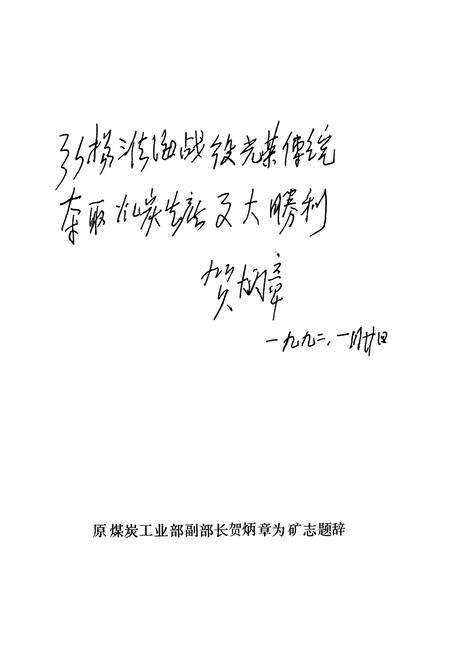 弘扬淮海战役光荣傳统
夺取煤炭生产更大勝利
贺炳章
一九九二.一月廿日
原煤炭工业部副部长贺炳章为矿志题辞